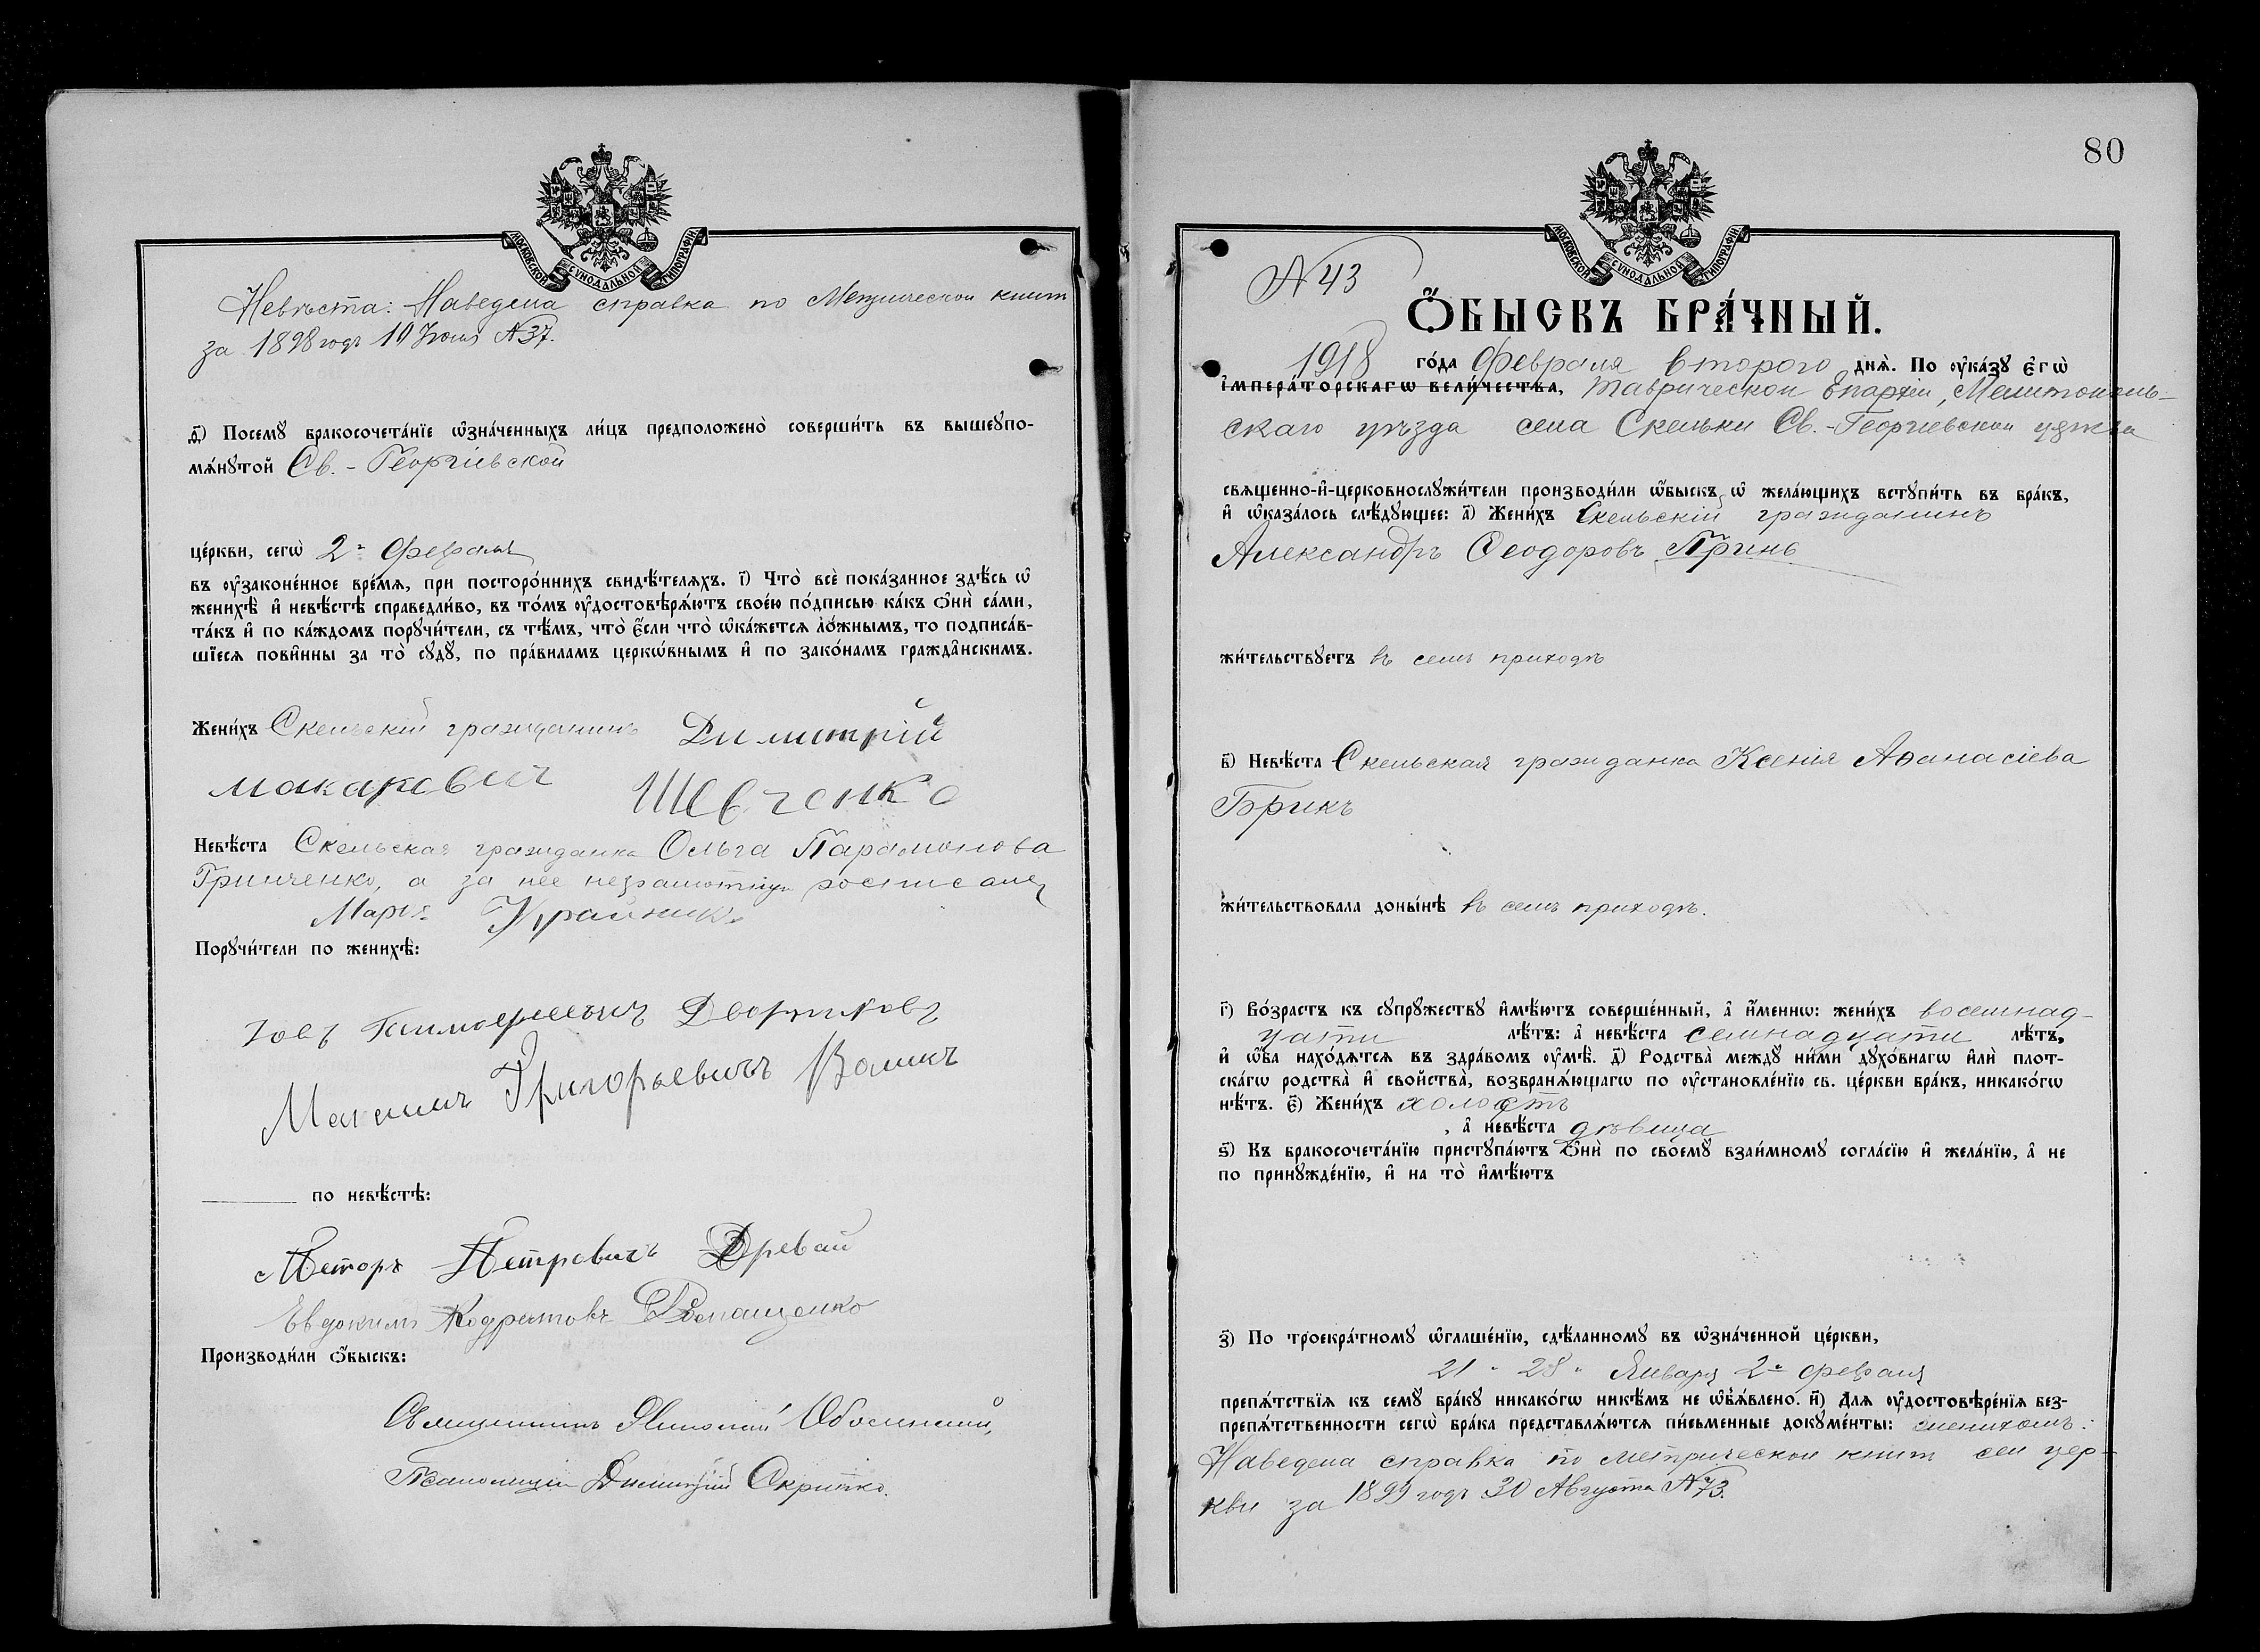 МОСКОВСКОЙ СѴНОДАЛЬНОЙ ТИПОГРАФІИ
Невѣста: Наведена справка по Метрической книгѣ
за 1898 годъ 10 Іюля № 37.
д҃) Посемꙋ̀ бракосочета́нїе ѡ҆зна́ченныхъ ли́цъ предположено̀ соверши́ть въ вышеꙋпо-
мѧ́нꙋтой Св.-Георгіевской
це́ркви, сегѡ̀ 2го Февраля
въ ᲂу҆законе́нное вре́мѧ, при посторо́ннихъ свидѣ́телѧхъ. і҃) Что̀ всѐ пока́занное здѣ́сь ѡ҆
женихѣ̀ и҆ невѣ́стѣ справедли́во, въ то́мъ ᲂу҆достовѣрѧ́ютъ свое́ю по́дписью ка́къ ѻ҆нѝ са́ми,
та́къ и҆ по ка́ждомъ порꙋчи́тели, съ тѣ́мъ, что̀ є҆́сли что̀ ѡ҆ка́жетсѧ ло́жнымъ, то подписа́в-
шїесѧ пови́нны за то̀ сꙋдꙋ̀, по пра́виламъ церкѡ́внымъ и҆ по зако́намъ гражда̑нскимъ.
Жени́хъ Скельскій гражданинъ Димитрій
Макаровичъ Шевченко
Невѣ́ста Скельская гражданка Ольга Парамонова
Гринченко, а за нее неграмотную росписалась
Марія Крайник
Порꙋчи́тели по женихѣ̀:
Іовъ Тимофеевичъ Дворниковъ
Максимъ Григорьевичъ Воликъ
по невѣ́стѣ:
Нестор Петровичъ Древаль
Евдокимъ Кодратовъ Ромащенко
Производи́ли ѻ҆́быскъ:
Священникъ Николай
Псаломщикъ Димитрій Скрипко.
80
МОСКОВСКОЙ СѴНОДАЛЬНОЙ ТИПОГРАФІИ
№ 43
Ѻ҆́БЫСКЪ БРА́ЧНЫЙ.
1918 го́да Февраля второго днѧ̀. По ᲂу҆ка́зꙋ є҆гѡ̀
і҆мпера́торскагѡ вели́чества, Таврической Епархіи, Мелитополь-
скаго уѣзда села Скельки Св.-Георгіевской церкви
свѧщенно-и҆-церковнослꙋжи́тели производи́ли ѻ҆́быскъ ѡ҆ жела́ющихъ встꙋпи́ть въ бра́къ,
и҆ ѡ҆каза́лось слѣ́дꙋющее: а҃) Жени́хъ Скельскій гражданинъ
Александръ Ѳеодоровъ Принь
жи́тельствꙋетъ въ семъ приходѣ
в҃) Невѣ́ста Скельская гражданка Ксенія Аѳанасіева
Брикъ
жи́тельствовала доны́нѣ въ семъ приходѣ.
г҃) Во́зрастъ къ сꙋпрꙋ́жествꙋ и҆мѣ́ютъ соверше́нный, а҆ и҆́меннѡ: жени́хъ восемнад-
цати лѣ́тъ: а҆ невѣ́ста семнадцати лѣ́тъ,
и҆ ѻ҆́ба нахо́дѧтсѧ въ здра́вомъ ᲂу҆мѣ̀. д҃) Родства̀ междꙋ̀ ни́ми дꙋхо́внагѡ и҆лѝ плот-
ска́гѡ родства̀ и҆ сво́йства̀, возбранѧ́ющагѡ по ᲂу҆становле́нїю св. це́ркви бра́къ, никако́гѡ
нѣ́тъ. є҃) Жени́хъ холостъ
, а҆ невѣ́ста дѣвица
ѕ҃) Къ бракосочета́нїю пристꙋпа́ютъ ѻ҆нѝ по своемꙋ̀ взаи́мномꙋ согла́сїю и҆ жела́нїю, а҆ не
по принꙋжде́нїю, и҆ на то̀ и҆мѣ́ютъ
з҃) По троекра́тномꙋ ѡ҆глаше́нїю, сдѣ́ланномꙋ въ ѡ҆зна́ченной це́ркви,
21го 28го Января 2го Февраля
препѧ́тствїѧ къ семꙋ̀ бра́кꙋ никако́гѡ никѣ́мъ не ѡ҆б̾ѧ́влено. и҃) Длѧ ᲂу҆достовѣре́нїѧ без-
препѧ́тственности сегѡ̀ бра́ка представлѧ́ютсѧ пи́сьменные докꙋме́нты: женихомъ:
Наведена справка по метрической книгѣ сей цер-
кви за 1899 годъ 30 Августа № 73.